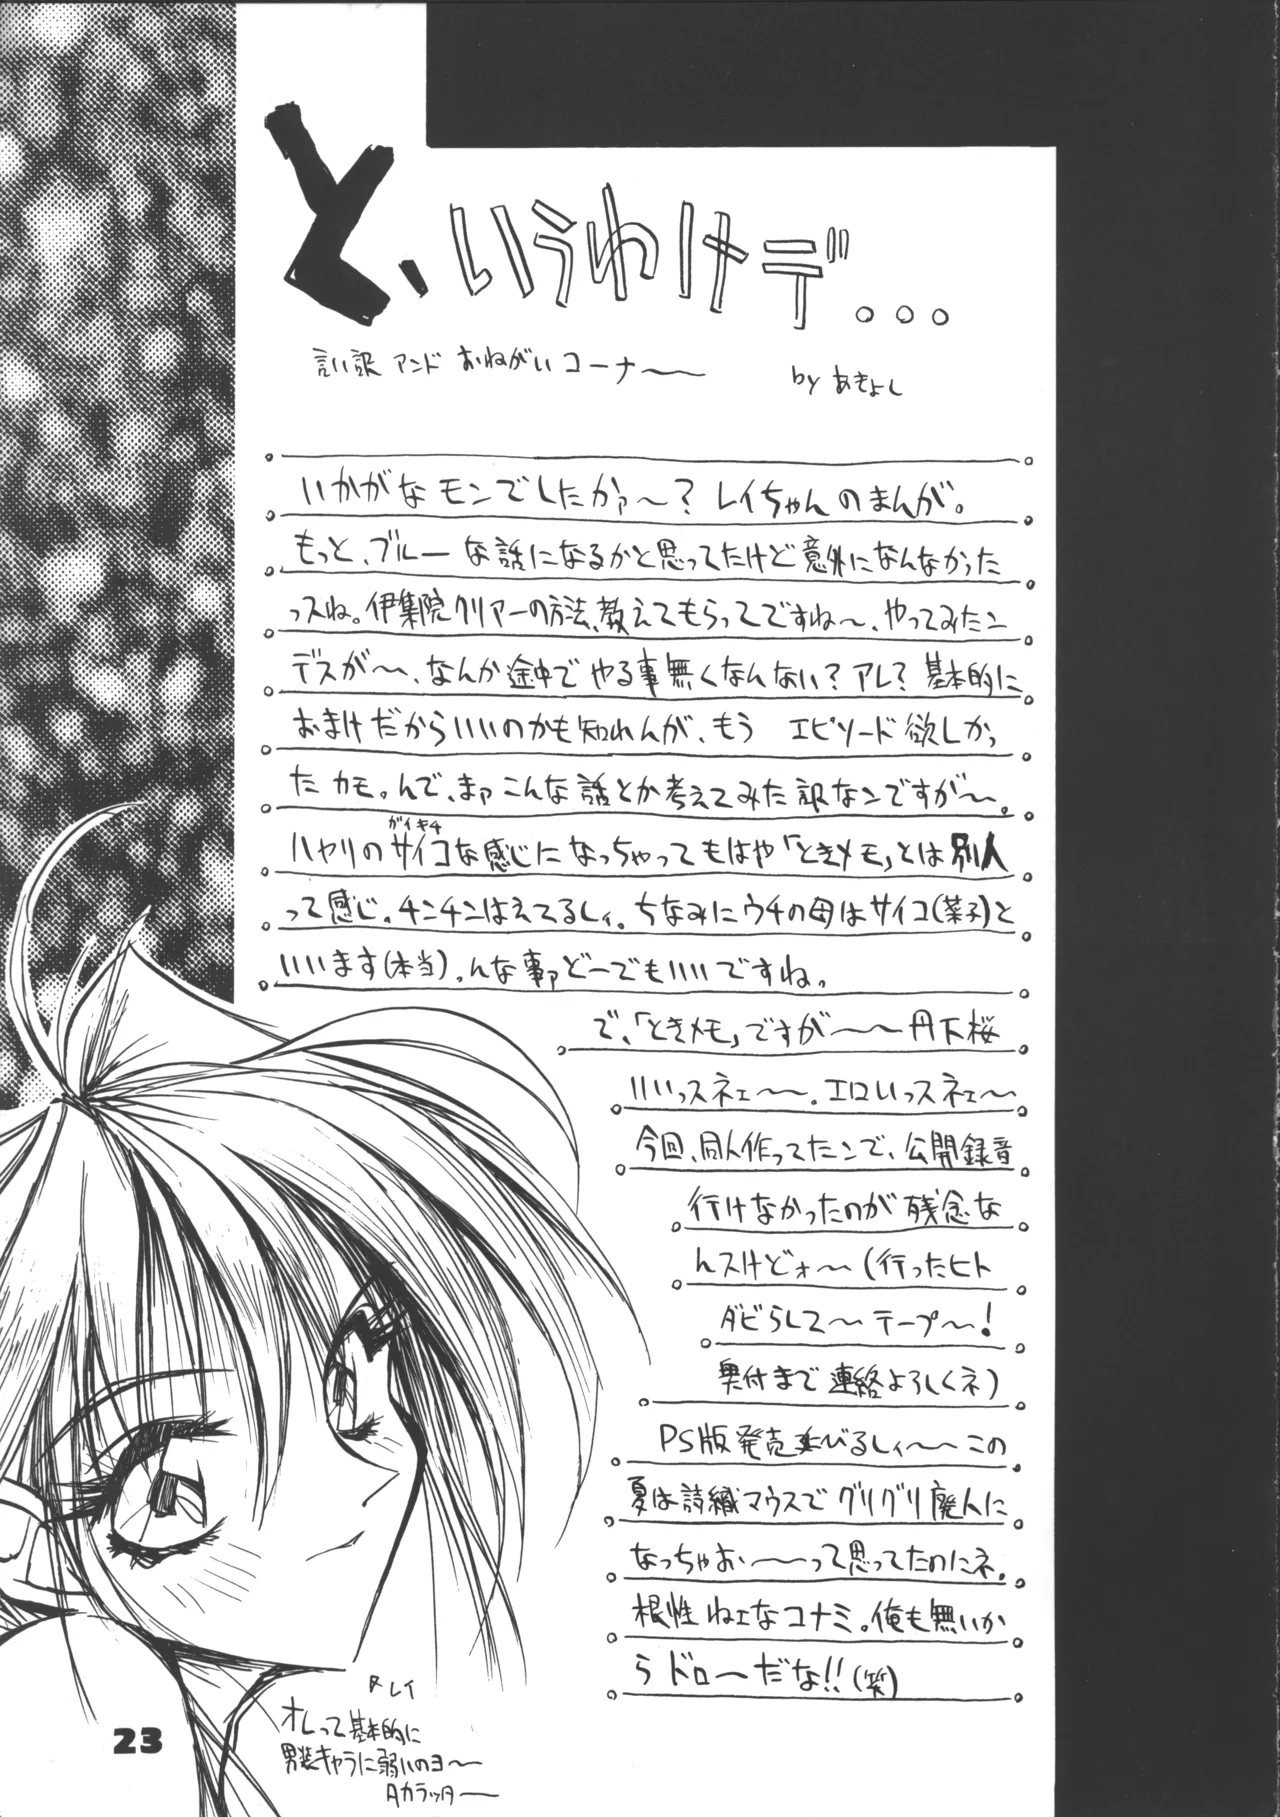 と、いうわけデ...
言い訳 アンド おねがい コーナ〜〜
by あきよし
いかがなモンでしたかァ〜? レイちゃんのまんが。
もっと、ブルーな話になるかと思ってたけど意外になんなかった
っスね。伊集院クリアーの方法、教えてもらってですね〜、やってみたン
デスが〜、なんか途中でやる事無くなんない?アレ?基本的に
おまけだからいいのかも知れんが、もう エピソード欲しかっ
たカモ。んで、まァこんな話とか考えてみた訳なンですが〜。
ハヤリのサイコな感じになっちゃってもはや「ときメモ」とは別人
ガイキチ
って感じ。チンチンはえてるしィ。ちなみにウチの母はサイコ(菜子)と
いいます(本当)。んな事ァどーでもいいですね。
で、「ときメモ」ですが〜〜丹下桜
いいっスネェ〜〜。エロいっスネェ〜
今回、同人作ってたンで、公開録音
行けなかったのが残念な
んスけどォ〜(行ったヒト
ダビらして〜テープ〜!
奥付まで連絡よろしくネ)
PS版発売延びるしィ〜〜この
夏は詩織マウスでグリグリ廃人に
なっちゃお〜〜って思ってたのにネ。
根性ねェなコナミ。俺も無いか
らドロ〜だな!!(笑)
レイ
オレって基本的に
男装キャラに弱いのヨ〜
Aカラッター
23